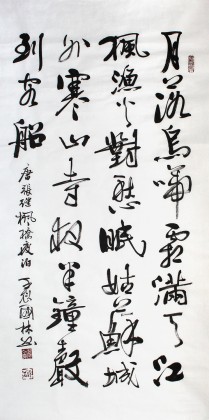 月落烏啼霜滿天江
楓漁火對愁眠姑蘇城
外寒山寺夜半鐘聲
到客船
唐張繼楓橋夜泊